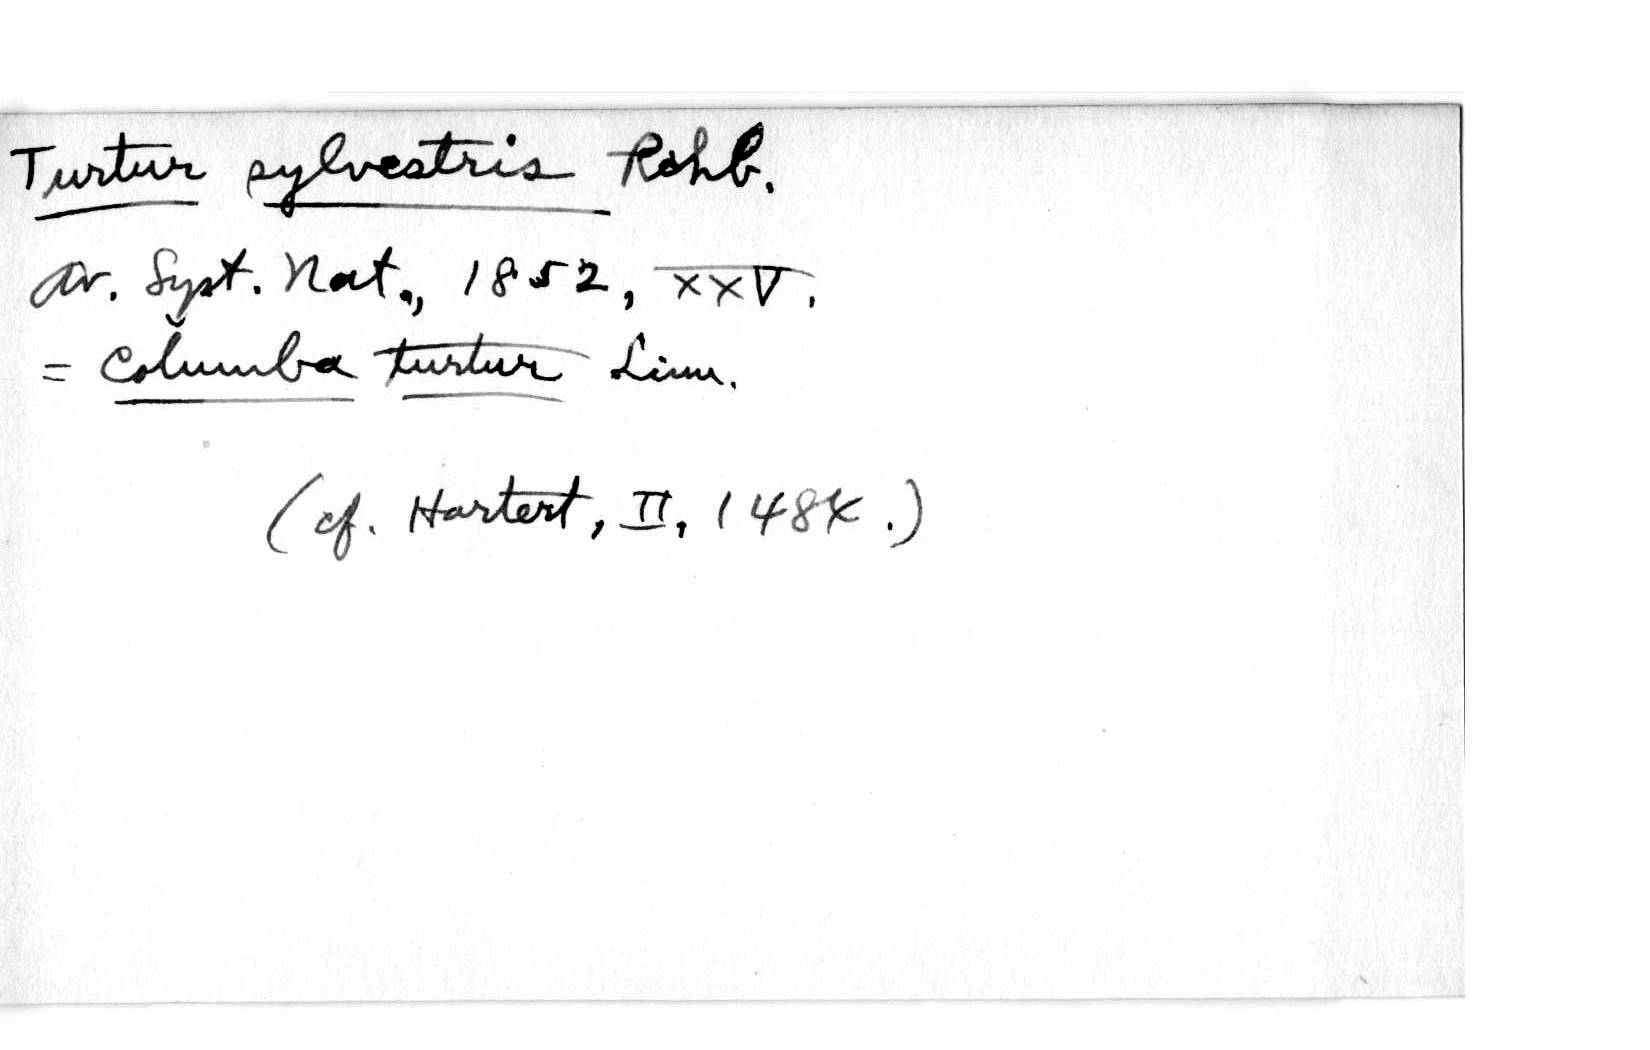 Turtur sylvestris Rchb.
Av. Syst. Nat., 1852, XXV.
= Columba turtur Linn.
(cf. Hartert, II, 1484.)